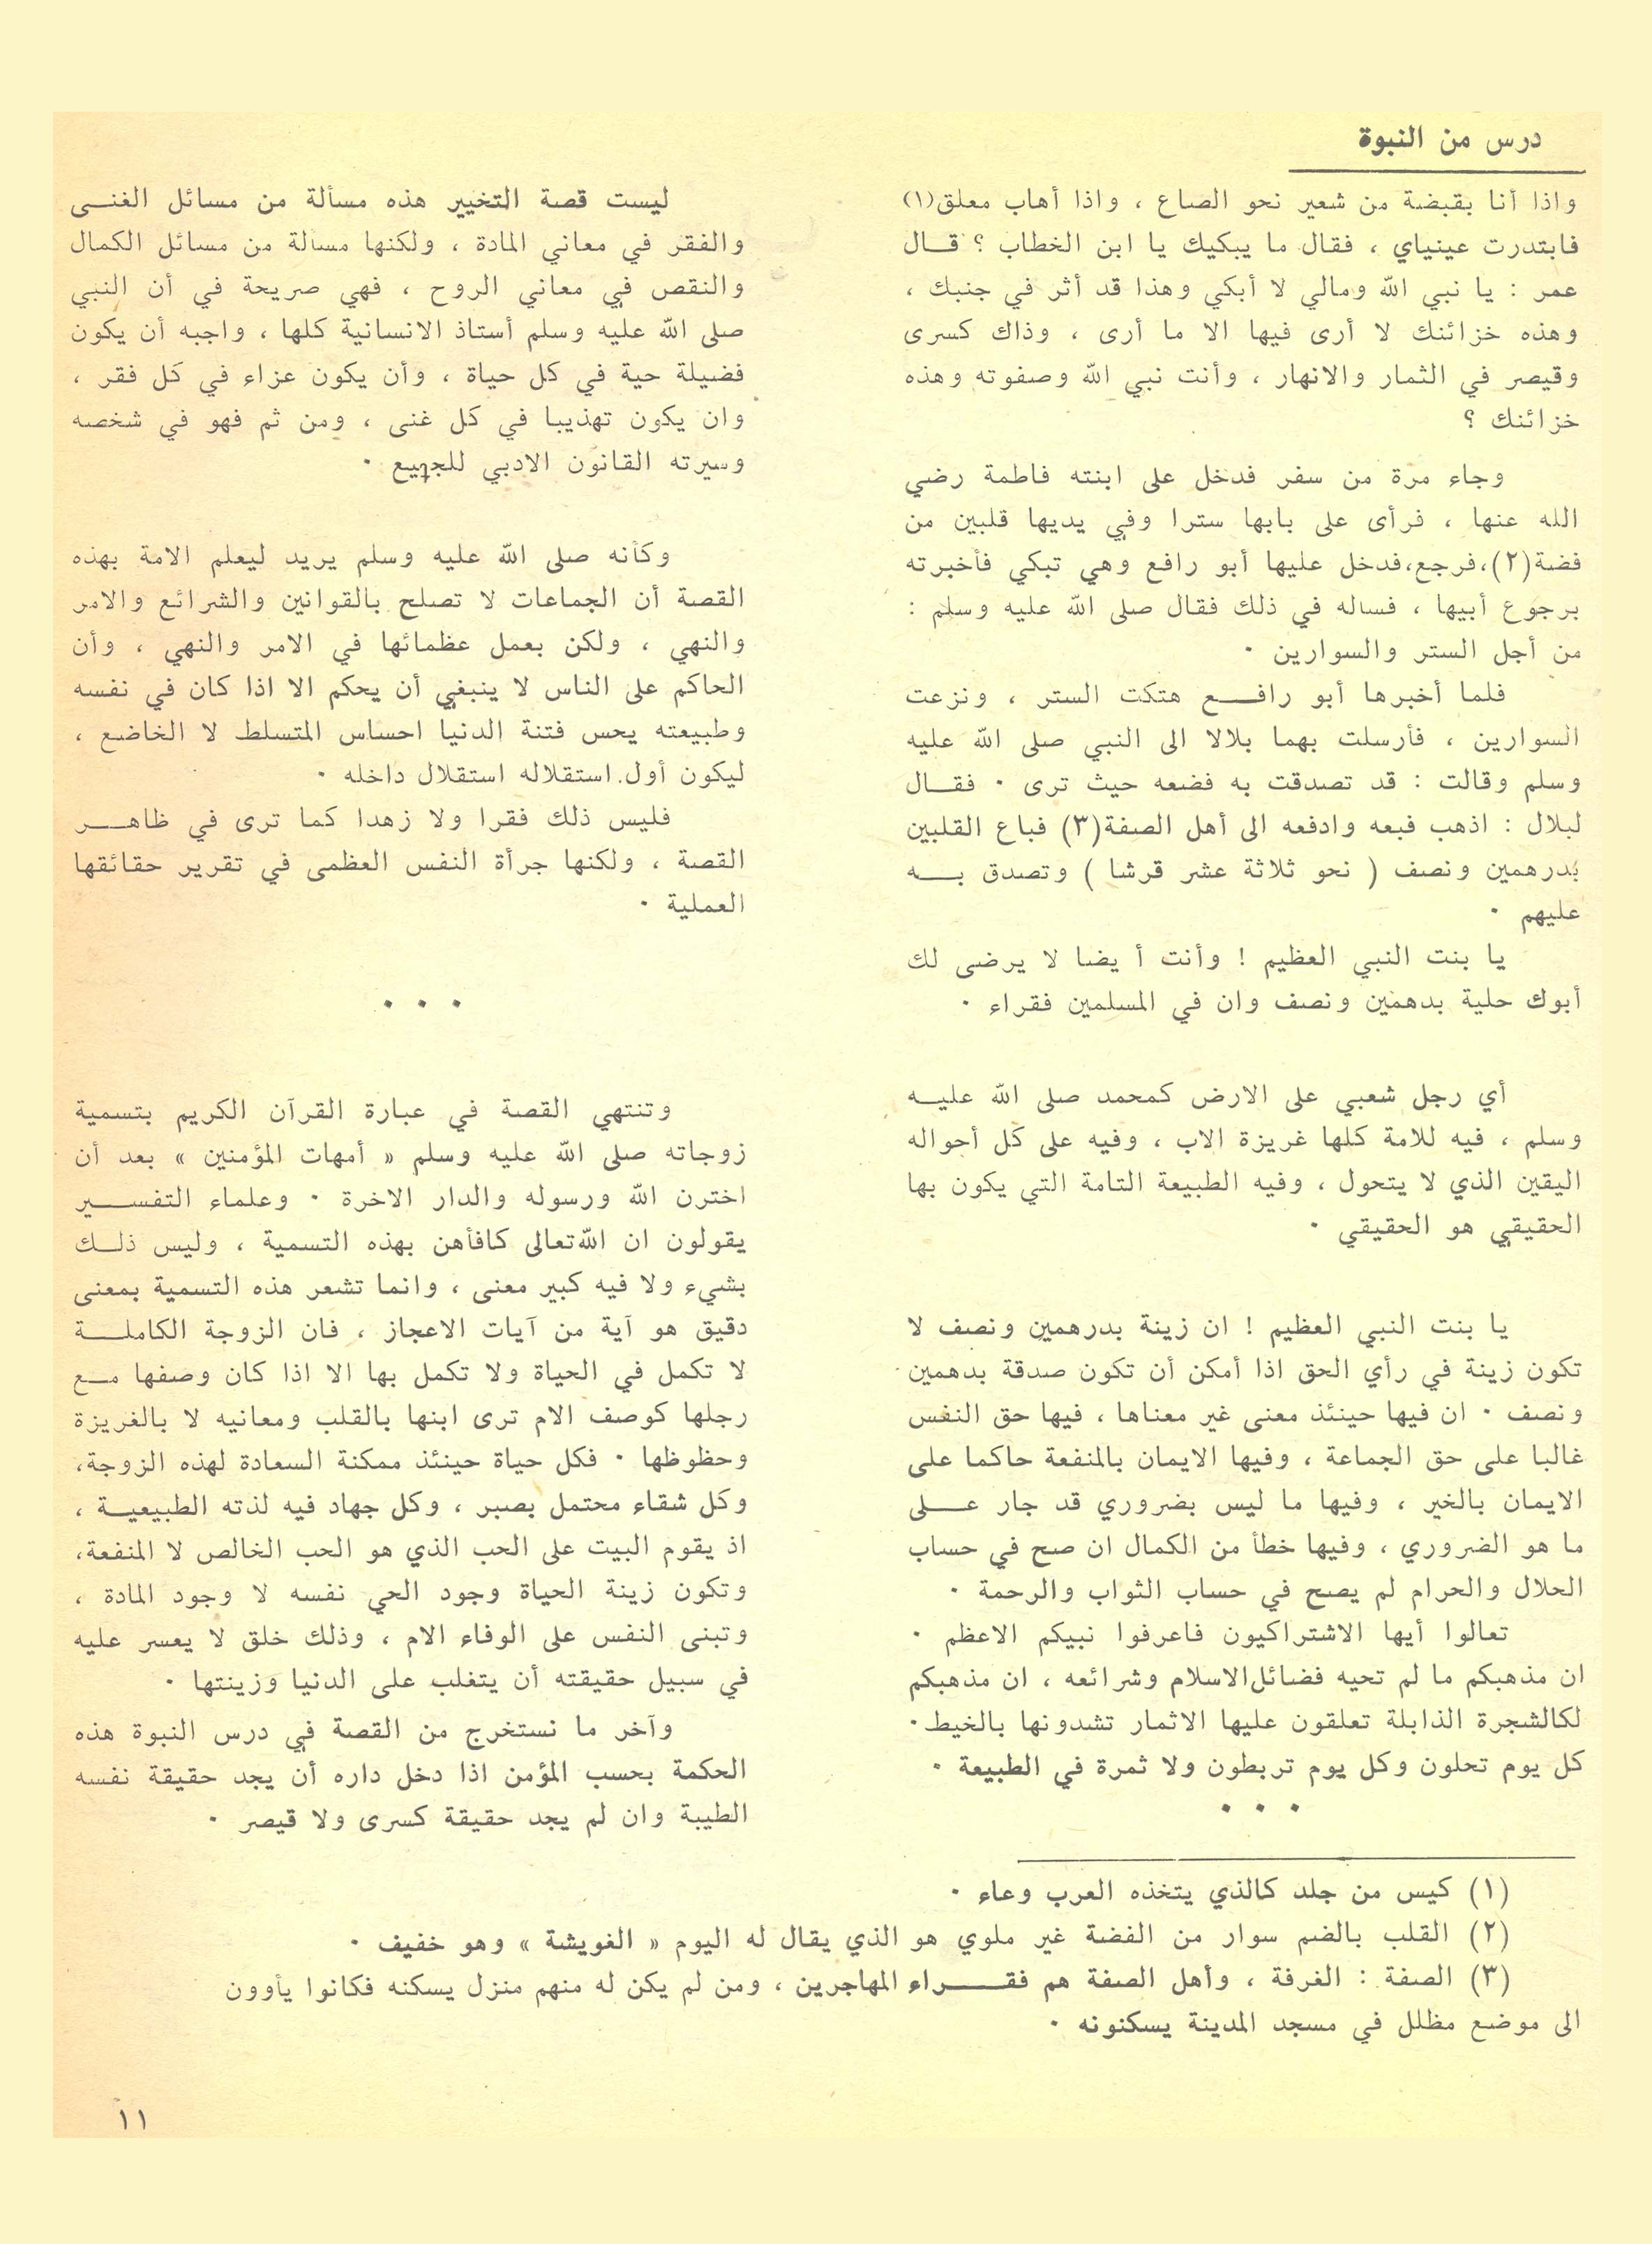 درس من النبوة
واذا أنا بقبضة من شعير نحو الصاع ، واذا أهاب معلق(١)
فابتدرت عينياي ، فقال ما يبكيك يا ابن الخطاب ؟ قــال
عمر : يا نبي الله ومالي لا أبكي وهذا قد أثر في جنبك ،
وهذه خزائنك لا أرى فيها الا ما أرى ، وذاك كسرى
وقيصر في الثمار والانهار ، وأنت نبي الله وصفوته وهذه
خزائنك ؟
وجاء مرة من سفر فدخل على ابنته فاطمة رضي
الله عنها ، فرأى على بابها سترا وفي يديها قلبين من
فضة(٢)،فرجع،فدخل عليها أبو رافع وهي تبكي فأخبرته
برجوع أبيها ، فساله في ذلك فقال صلى الله عليه وسلم :
من أجل الستر والسوارين ٠
فلما أخبرها أبو رافــع هتكت الستر ، ونزعت
السوارين ، فأرسلت بهما بلالا الى النبي صلى الله عليه
وسلم وقالت : قد تصدقت به فضعه حيث ترى ٠ فقــال
لبلال : اذهب فبعه وادفعه الى أهل الصفة(٣) فباع القلبين
بدرهمين ونصف ( نحو ثلاثة عشر قرشا ) وتصدق بــه
عليهم ٠
يا بنت النبي العظيم ! وأنت أ يضا لا يرضى لك
أبوك حلية بدهمين ونصف وان في المسلمين فقراء ٠
أي رجل شعبي على الارض كمحمد صلى الله عليــه
وسلم ، فيه للامة كلها غريزة الاب ، وفيه على كل أحواله
اليقين الذي لا يتحول ، وفيه الطبيعة التامة التي يكون بها
الحقيقي هو الحقيقي ٠
يا بنت النبي العظيم ! ان زينة بدرهمين ونصف لا
تكون زينة في رأي الحق اذا أمكن أن تكون صدقة بدهمين
ونصف ٠ ان فيها حينئذ معنى غير معناها ، فيها حق النفس
غالبا على حق الجماعة ، وفيها الايمان بالمنفعة حاكما على
الايمان بالخير ، وفيها ما ليس بضروري قد جار عــلى
ما هو الضروري ، وفيها خطأ من الكمال ان صح في حساب
الحلال والحرام لم يصح في حساب الثواب والرحمة ٠
تعالوا أيها الاشتراكيون فاعرفوا نبيكم الاعظم ٠
ان مذهبكم ما لم تحيه فضائل الاسلام وشرائعه ، ان مذهبكم
لكالشجرة الذابلة تعلقون عليها الاثمار تشدونها بالخيط٠
كل يوم تحلون وكل يوم تربطون ولا ثمرة في الطبيعة ٠
٠ ٠ ٠
ليست قصة التخيير هذه مسألة من مسائل الغنــى
والفقر في معاني المادة ، ولكنها مسالة من مسائل الكمال
والنقص في معاني الروح ، فهي صريحة في أن النبي
صلى الله عليه وسلم أستاذ الانسانية كلها ، واجبه أن يكون
فضيلة حية في كل حياة ، وأن يكون عزاء في كل فقر ،
وان يكون تهذيبا في كل غنى ، ومن ثم فهو في شخصه
وسيرته القانون الادبي للجميع ٠
وكأنه صلى الله عليه وسلم يريد ليعلم الامة بهذه
القصة أن الجماعات لا تصلح بالقوانين والشرائع والامر
والنهي ، ولكن بعمل عظمائها في الامر والنهي ، وأن
الحاكم على الناس لا ينبغي أن يحكم الا اذا كان في نفسه
وطبيعته يحس فتنة الدنيا احساس المتسلط لا الخاضع ،
ليكون أول استقلاله استقلال داخله ٠
فليس ذلك فقرا ولا زهدا كما ترى في ظاهــر
القصة ، ولكنها جرأة النفس العظمى في تقرير حقائقها
العملية ٠
٠ ٠ ٠
وتنتهي القصة في عبارة القرآن الكريم بتسمية
زوجاته صلى الله عليه وسلم « أمهات المؤمنين » بعد أن
اخترن الله ورسوله والدار الاخرة ٠ وعلماء التفســير
يقولون ان الله تعالى كافأهن بهذه التسمية ، وليس ذلــك
بشيء ولا فيه كبير معنى ، وانما تشعر هذه التسمية بمعنى
دقيق هو آية من آيات الاعجاز ، فان الزوجة الكاملــة
لا تكمل في الحياة ولا تكمل بها الا اذا كان وصفها مــع
رجلها كوصف الام ترى ابنها بالقلب ومعانيه لا بالغريزة
وحظوظها ٠ فكل حياة حينئذ ممكنة السعادة لهذه الزوجة،
وكل شقاء محتمل بصبر ، وكل جهاد فيه لذته الطبيعيــة ،
اذ يقوم البيت على الحب الذي هو الحب الخالص لا المنفعة،
وتكون زينة الحياة وجود الحي نفسه لا وجود المادة ،
وتبنى النفس على الوفاء الام ، وذلك خلق لا يعسر عليه
في سبيل حقيقته أن يتغلب على الدنيا وزينتها ٠
وآخر ما نستخرج من القصة في درس النبوة هذه
الحكمة بحسب المؤمن اذا دخل داره أن يجد حقيقة نفسه
الطيبة وان لم يجد حقيقة كسرى ولا قيصر ٠
(١) كيس من جلد كالذي يتخذه العرب وعاء ٠
(٢) القلب بالضم سوار من الفضة غير ملوي هو الذي يقال له اليوم « الغويشة » وهو خفيف ٠
(٣) الصفة : الغرفة ، وأهل الصفة هم فقــراء المهاجرين ، ومن لم يكن له منهم منزل يسكنه فكانوا يأوون
الى موضع مظلل في مسجد المدينة يسكنونه ٠
١١